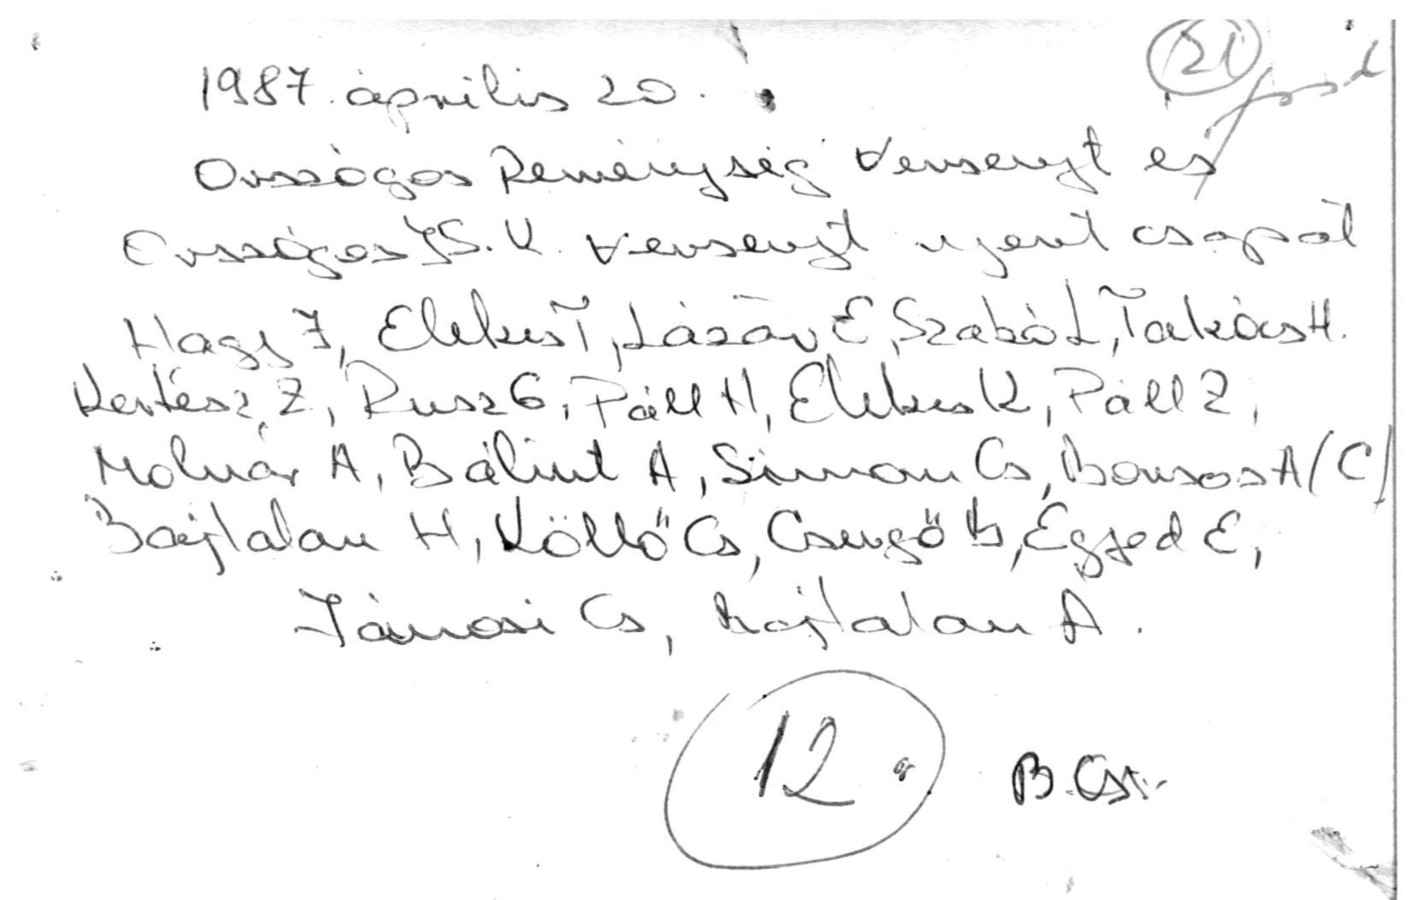 21
1987. április 20.
Országos Reménység Versenyt és
Országos I.S.K. versenyt nyert csapat
Nagy I, Elekes T, Lázár E, Szabó L, Takács H.
Kertész Z, Rusz G, Páll H, Elekes K, Páll Z,
Molnár A, Bálint A, Simon Cs, Bonsos A/(C)
Bajtalan H, Köllő Cs, Csergő B, Egyed E,
Jánosi Cs, Bajtalan A.
12.
B. Cst.